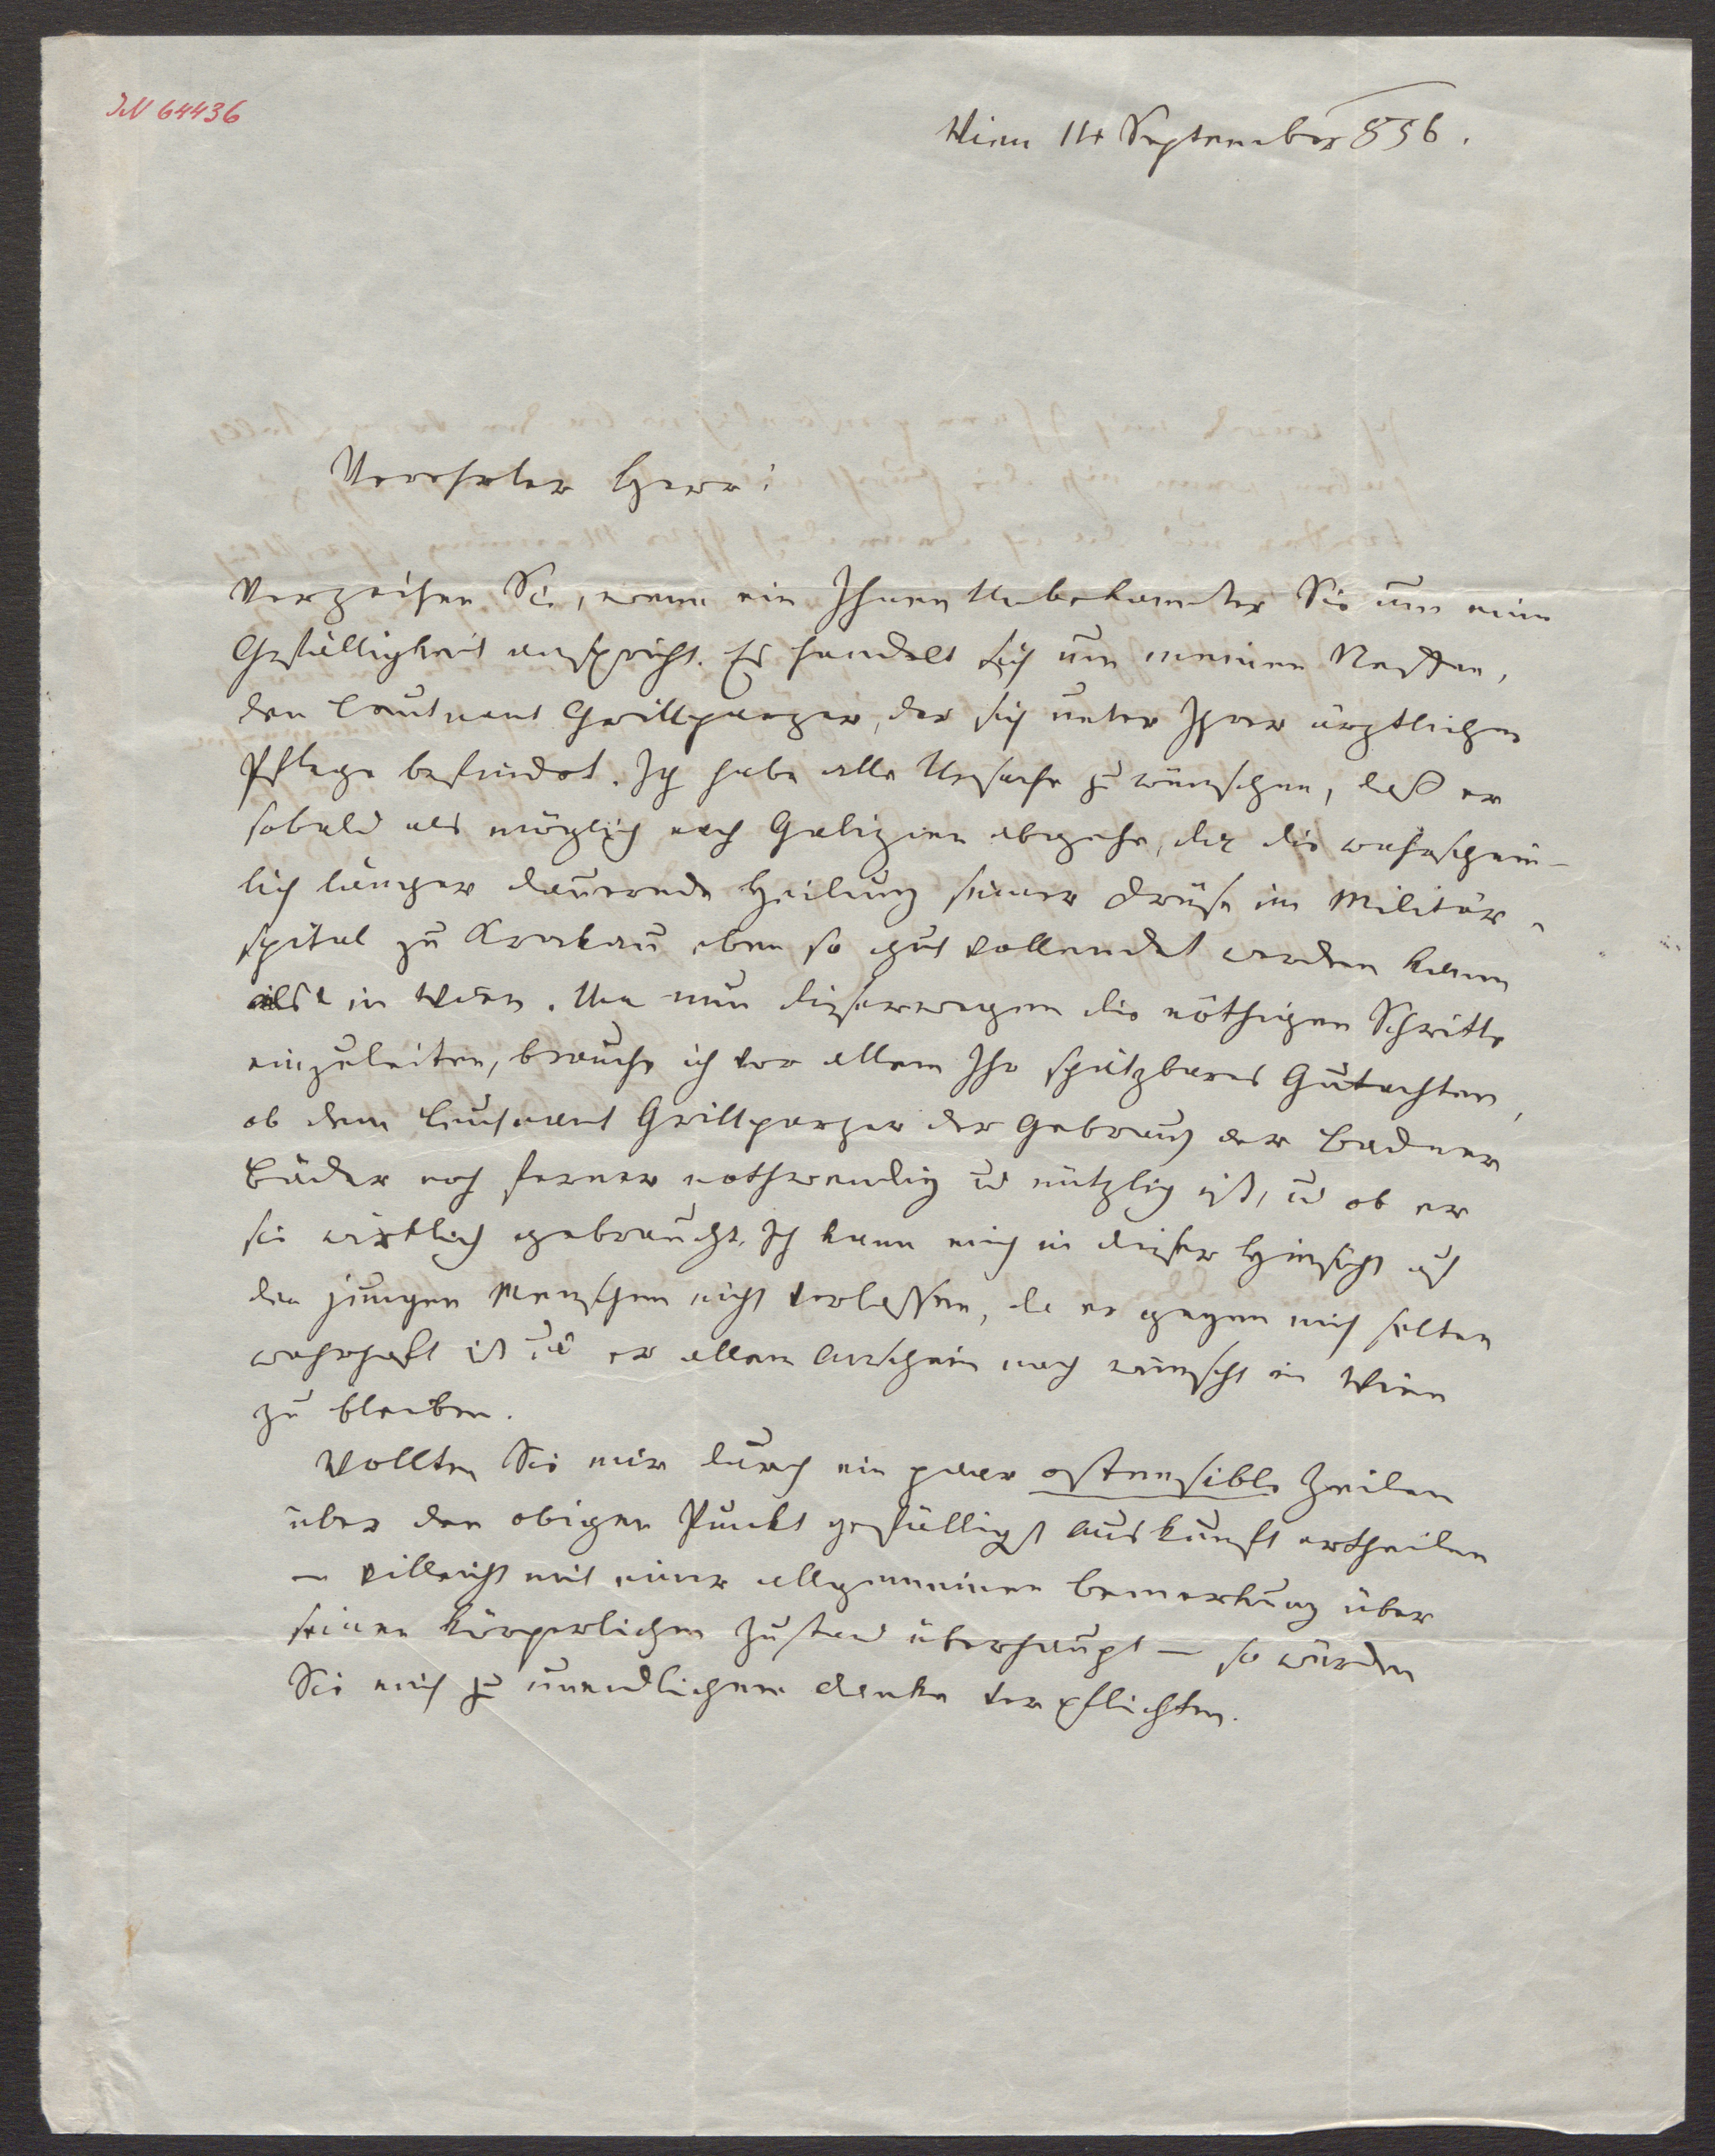 IN 64436
Wien 14 September 856.
Verehrter Herr!
Verzeihen Sie, wenn ein Ihnen Unbekannter Sie um eine
Gefälligkeit anspricht. Es handelt sich um meinen Neffen,
den Leutnant Grillparzer, der sich unter Ihrer ärztlichen
Pflege befindet. Ich habe alle Ursache zu wünschen, daß er
sobald als möglich nach Galizien abgehe, da die wahrschein–
lich länger dauernde Heilung seiner Drüse im Militär-
spital zu Krakau eben so gut vollendet werden kann
als in Wien. Um nun dieserwegen die nöthigen Schritte
einzuleiten, brauche ich vor allem Ihr schätzbares Gutachten,
ob dem Leutnant Grillparzer der Gebrauch der Badner
Bäder noch ferner nothwendig u nützlich ist, u ob er
sie wirklich gebraucht. Ich kann mich in dieser Hinsicht auf
den jungen Menschen nicht verlassen, da er gegen mich selten
wahrhaft ist u er allem Anschein nach wünscht in Wien
zu bleiben.
Wollten Sie mir durch ein paar ostensible Zeilen
über den obigen Punkt gefälligst Auskunft ertheilen
– villeicht mit einer allgemeinen Bemerkung über
seinen körperlichen Zustand überhaupt – so würden
Sie mich zu unendlichem Danke verpflichten.